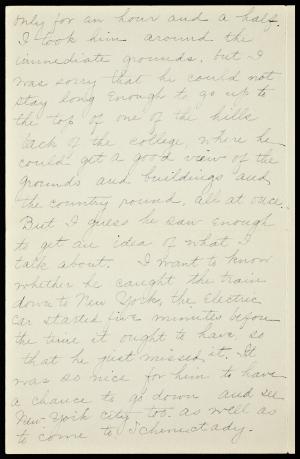 only for an hour and a half.
I took him around the
immediate grounds, but I
was sorry that he could not
stay long enough to go up to
the top of one of the hills
back of the college, where he
could get a good view of the
grounds and buildings and
the country round, all at once.
But I guess he saw enough
to get an idea of what I
talk about. I want to know
whether he caught the train
down to New York, the Electric
car started five minutes before
the time it ought to have, so
that he just missed it. It
was so nice for him to have
a chance to go down and see
New York city too. as well as
to come to Schenectady.